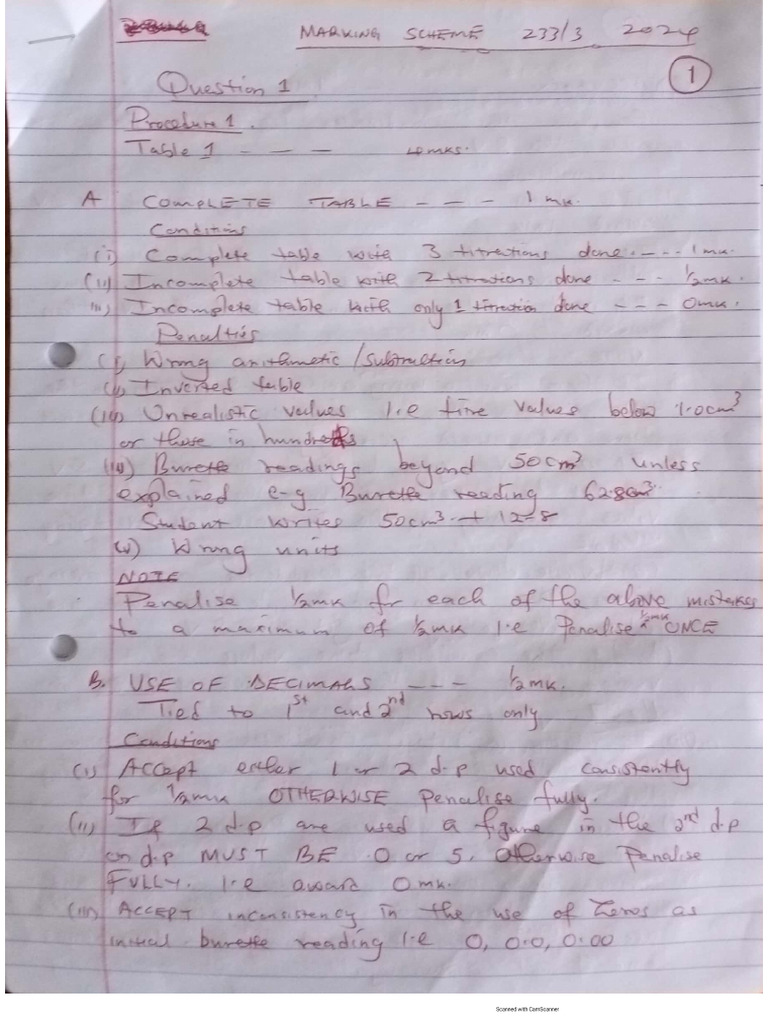 MARKING SCHEME 233/3 2024
1
Question 1
Procedure 1.
Table 1 - - - 4mks.
A COMPLETE TABLE - - - 1 mk.
Conditions
(i) Complete table with 3 titrations done - - - 1mk.
(ii) Incomplete table with 2 titrations done - - - ½mk.
iii) Incomplete table with only 1 titration done - - - 0mk.
Penalties
(i) Wrong arithmetic /Subtraction
(ii) Inverted table
(iii) Unrealistic values i.e titre values below 1.0cm³
or those in hundreds
(iv) Burette readings beyond 50cm³ unless
explained e-g Burette reading 62.8cm³.
Student writes 50cm³ + 12.8
(v) Wrong units
NOTE
Penalise ½mk for each of the above mistakes
to a maximum of ½mk i.e Penalise ½mk ONCE
B. USE OF DECIMALS - - - ½mk.
Tied to 1st and 2nd rows only
Conditions
(i) Accept either 1 or 2 d.p used consistently
for ½mk OTHERWISE Penalise fully.
(ii) If 2 d.p are used a figure in the 2nd d.p
on d.p MUST BE 0 or 5. Otherwise Penalise
FULLY. i.e award 0mk.
(iii) ACCEPT inconsistency in the use of Zeros as
initial burette reading i.e 0, 0.0, 0.00
Scanned with CamScanner